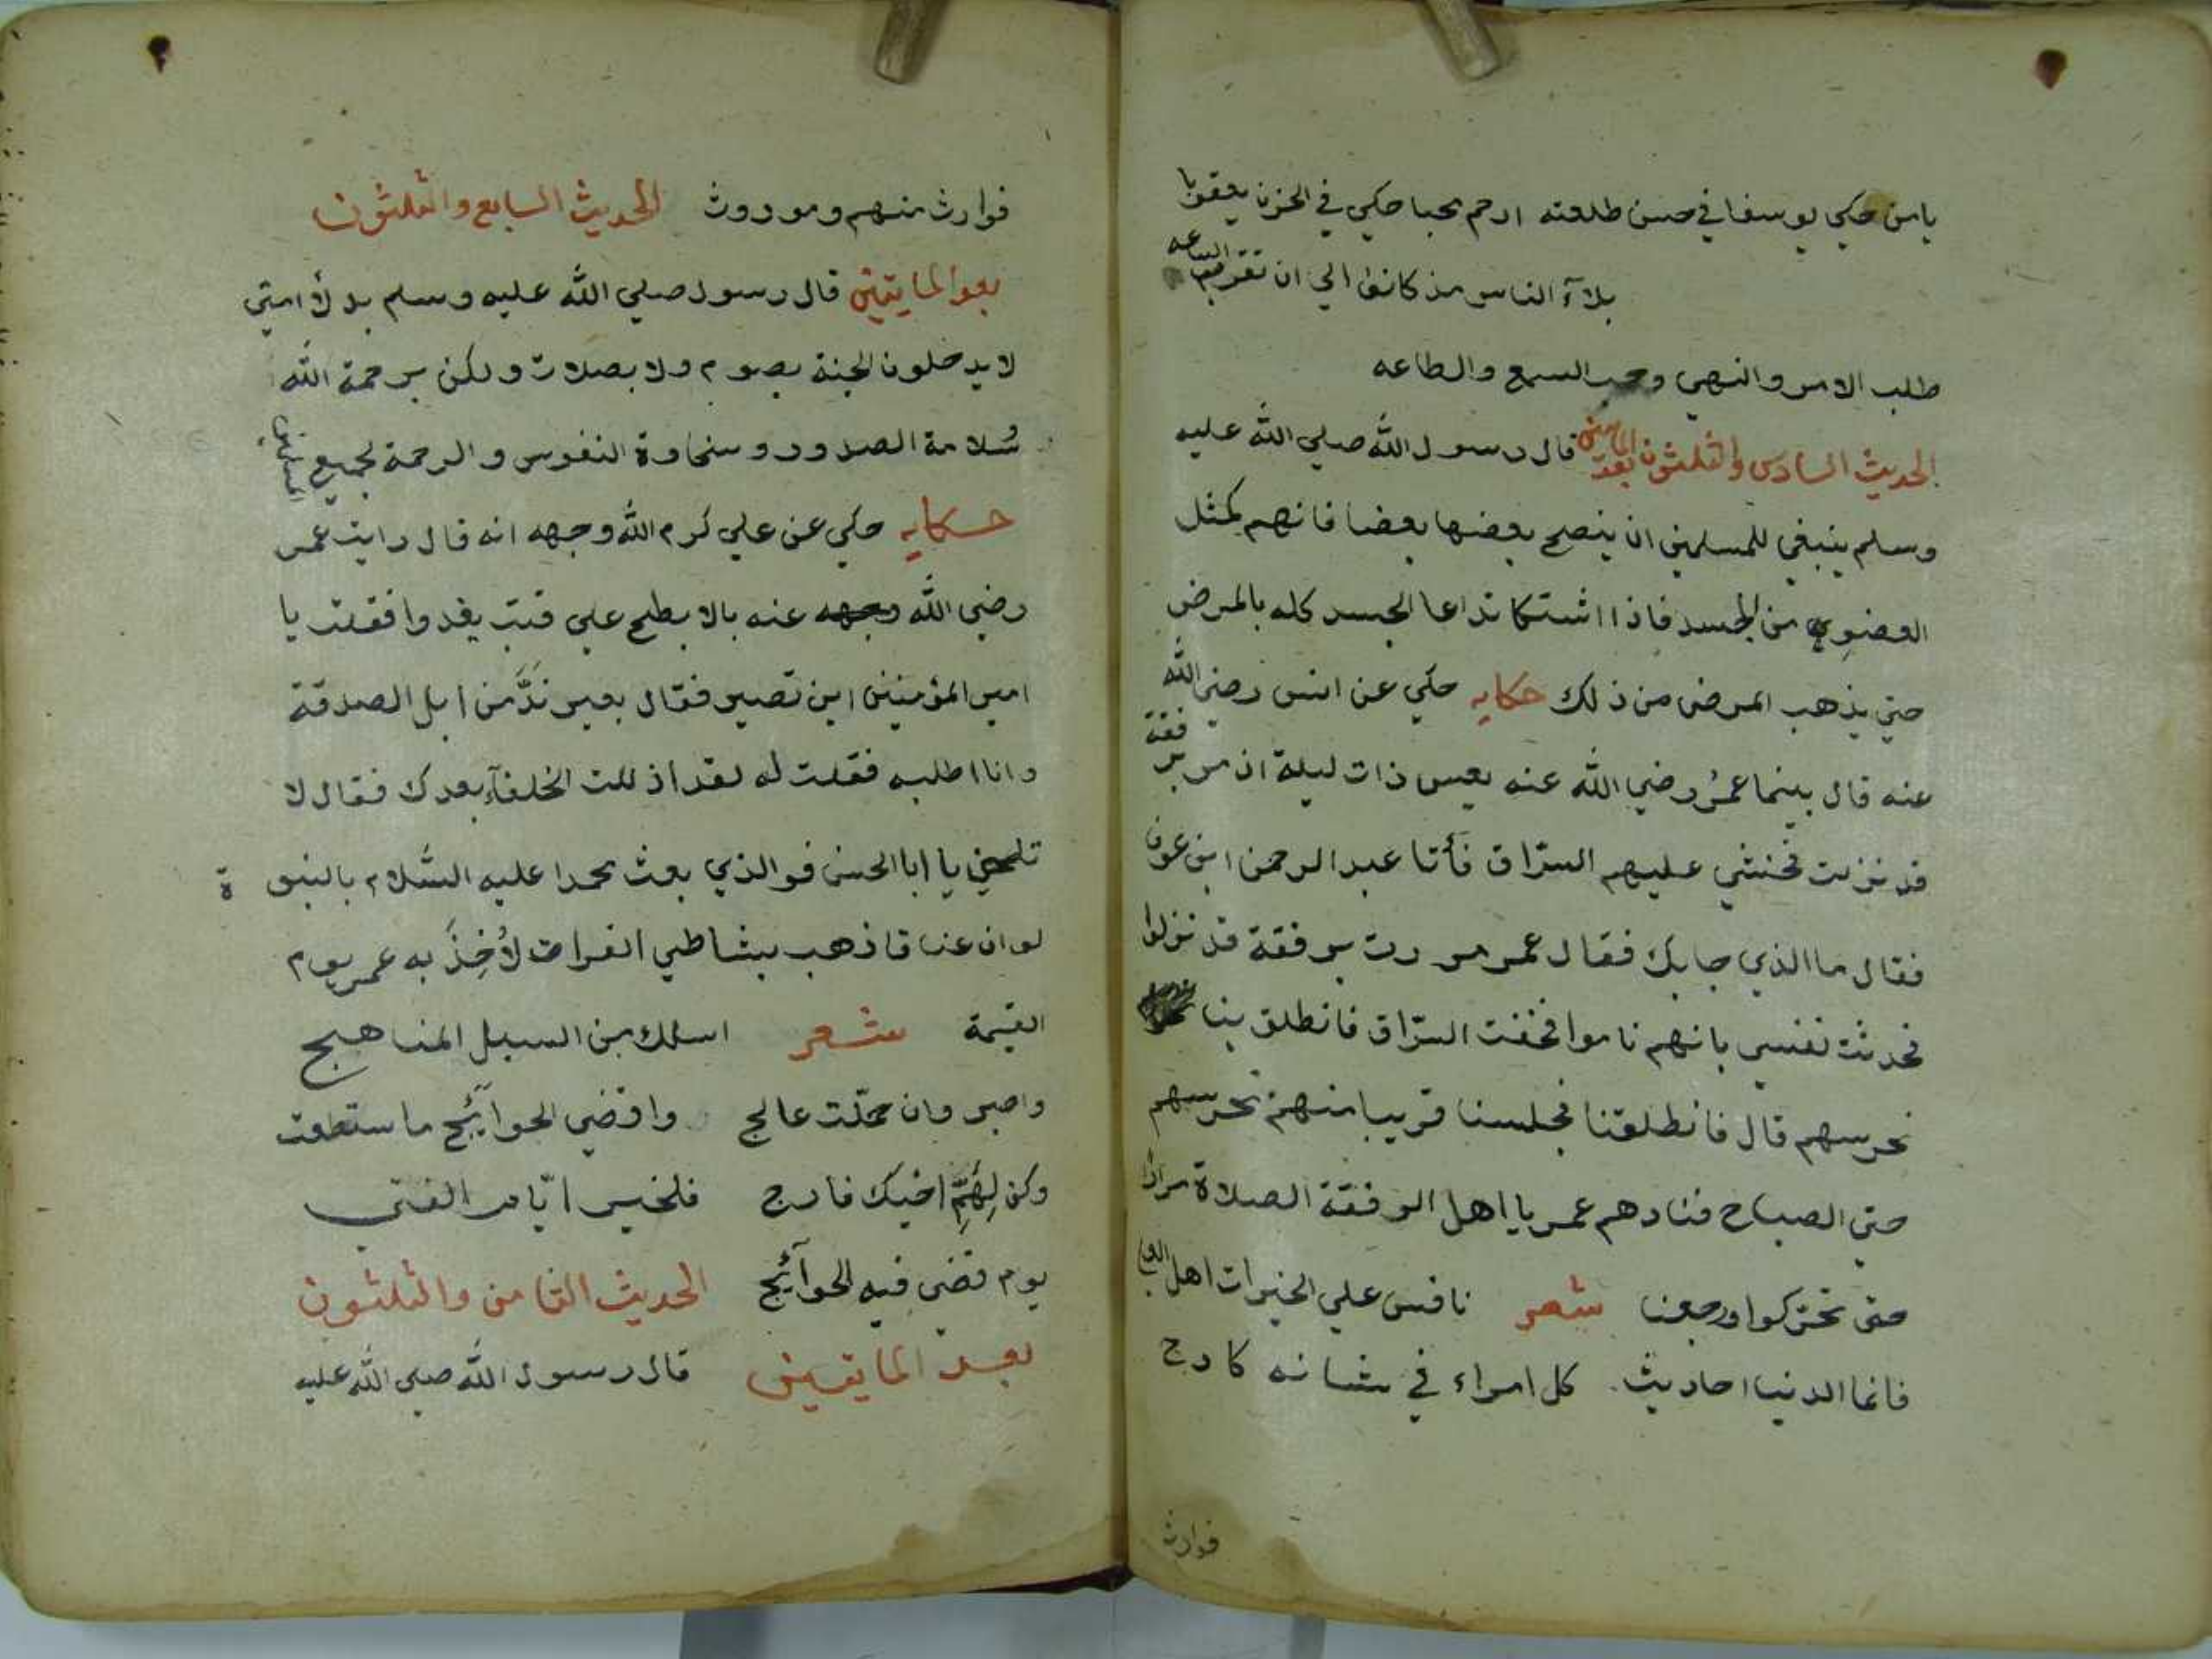 يا من حكي يوسفا في حسن طلعته ارحم محبا حكي في الحزن يعقوبا
بلآء الناس مذ كانوا الي ان تقوم الساعه
طلب الامر والنهي وحب السمع والطاعه
الحديث السادس والثلثون بعد المايتين قال رسول الله صلي الله عليه
وسلم ينبغي للمسلمين ان ينصح بعضها بعضا فانهم كمثل
العضو من الجسد فاذا اشتكا تداعا الجسد كله بالمرض
حتي يذهب المرض من ذلك حكايه حكي عن انس رضي الله
عنه قال بينما عمر رضي الله عنه يعس ذات ليلة اذ مر برفقة
قد نزلت فخشي عليهم السرّاق فأتا عبد الرحمن ابن عوف
فقال ما الذي جابك فقال عمر مررت برفقة قد نزلوا
فحدثت نفسي بانهم ناموا فخفت السرّاق فانطلق بنا
نحرسهم قال فانطلقنا فجلسنا قريبا منهم نحرسهم
حتي الصباح فنادهم عمر يا اهل الرفقة الصلاة مرارا
حتي تحركوا ورجعنا شعر نافس علي الخيرات اهل العلا
فانما الدنيا احاديث. كل امراء في شانه كادح
فوارث
فوارث منهم وموروث الحديث السابع والثلثون
بعد المايتين قال رسول صلي الله عليه وسلم بدلآ امتي
لا يدخلون الجنة بصوم ولا بصلات ولكن برحمة الله
سلامة الصدور وسخاوة النفوس والرحمة لجميع المسلمين
حكايه حكي عن علي كرم الله وجهه انه قال رايت عمر
رضي الله وجهه عنه بالابطح علي قتب يغدوا فقلت يا
امير المؤمنين اين تصير فقال بعير ندّ من ابل الصدقة
وانا اطلبه فقلت له لقد اذللت الخلفآء بعدك فقال لا
تلمني يا ابا الحسن فوالذي بعث محمدا عليه السّلام بالنبوة
لو ان عناقا ذهب بشاطي الفرات لأُخِذَ به عمر يوم
القيمة شعر اسلك من السبل المناهج
واصبر وان حمّلت عالج واقضي الحوآئج ماستطعت
وكن لِهَمِّ اخيك فارج فلخير ايّام الفتي
يوم قضي فيه الحوآئج الحديث الثامن والثلثون
بعد المايتين قال رسول الله صلي الله عليه